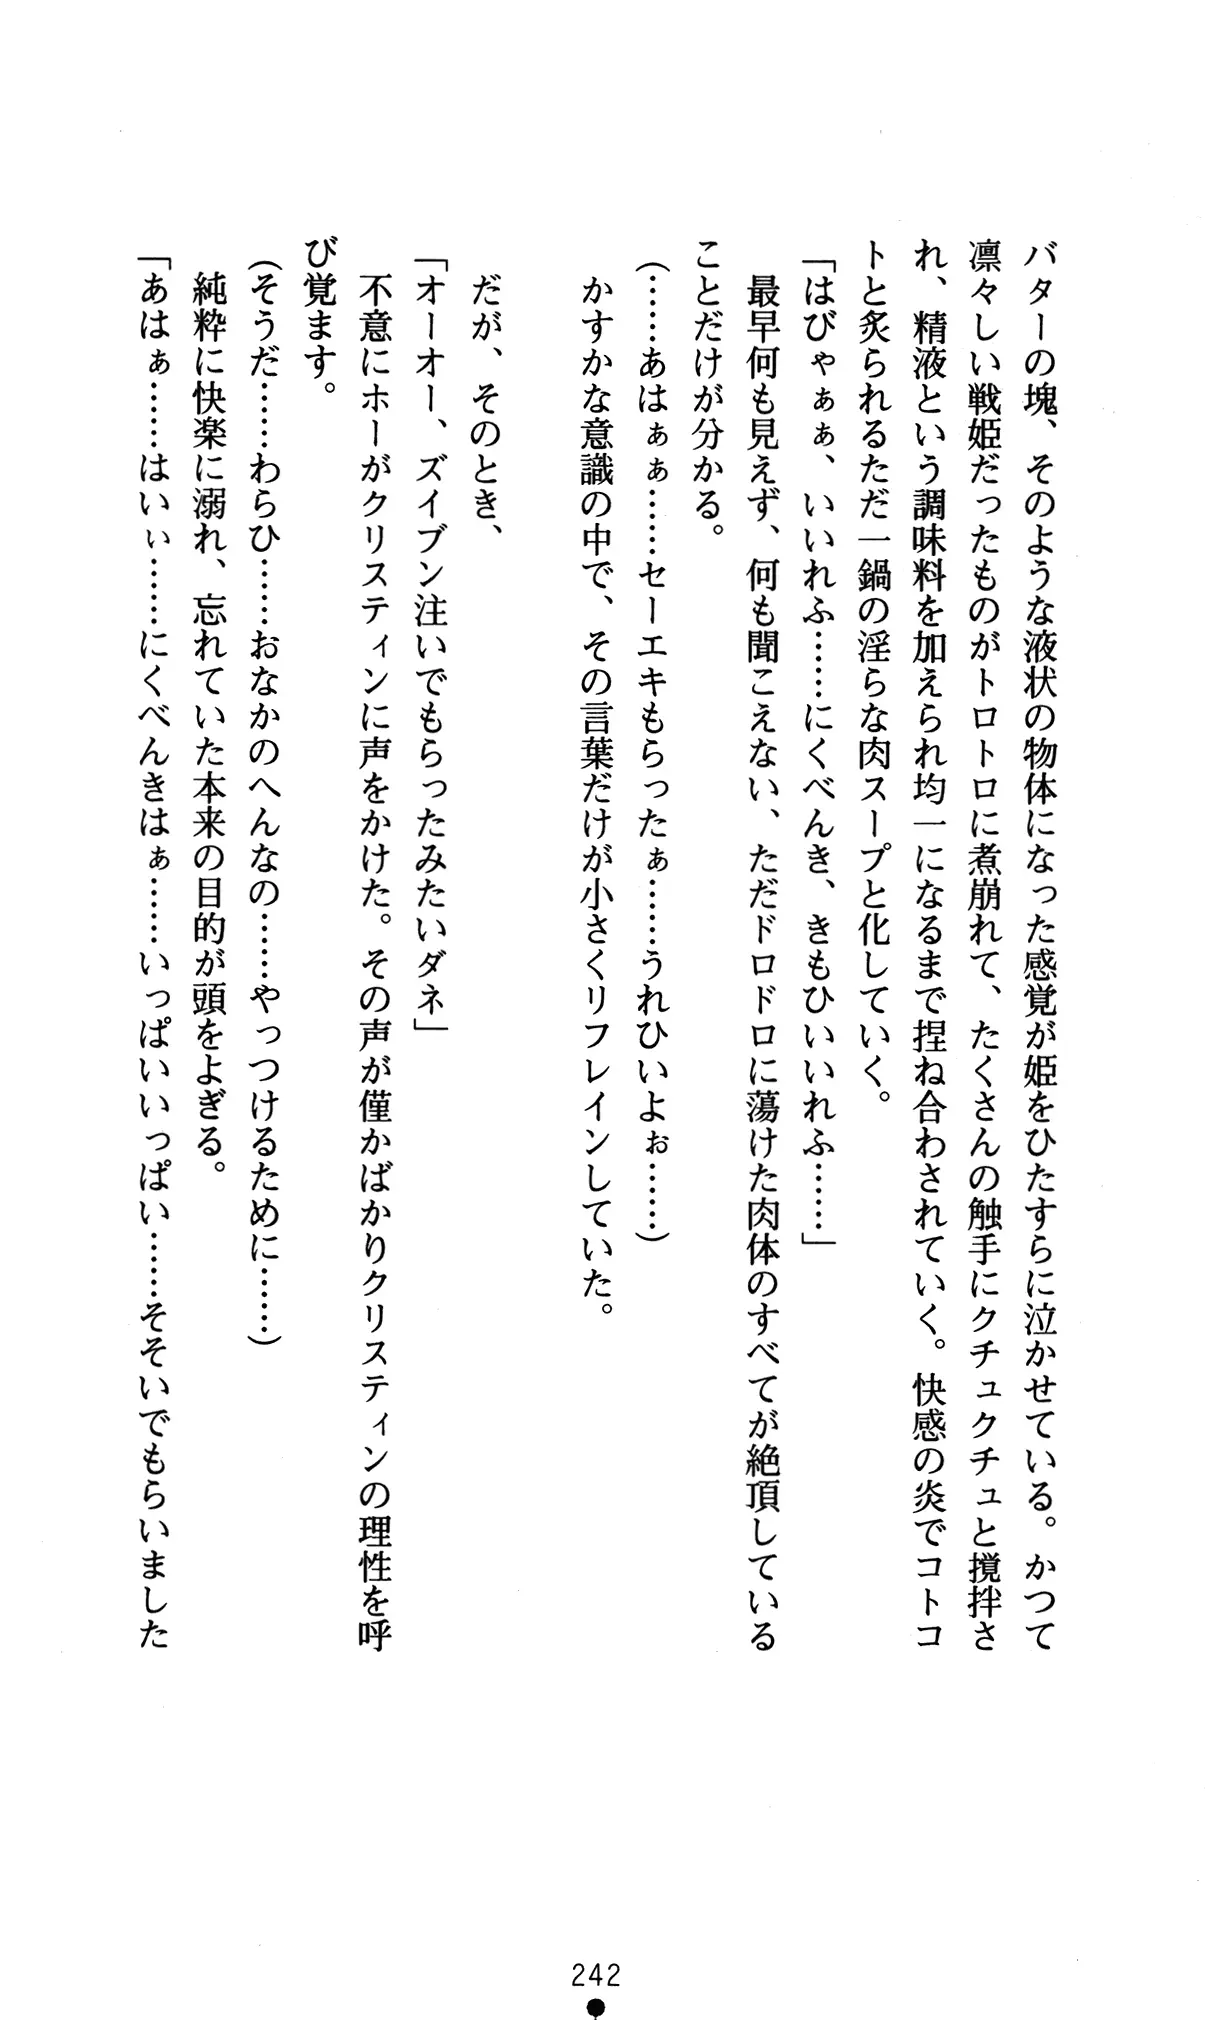 バターの塊、そのような液状の物体になった感覚が姫をひたすらに泣かせている。かつて
凛々しい戦姫だったものがトロトロに煮崩れて、たくさんの触手にクチュクチュと撹拌さ
れ、精液という調味料を加えられ均一になるまで捏ね合わされていく。快感の炎でコトコ
トと炙られるただ一鍋の淫らな肉スープと化していく。
「はびゃぁぁ、いいれふ……にくべんき、きもひいいれふ……」
最早何も見えず、何も聞こえない、ただドロドロに蕩けた肉体のすべてが絶頂している
ことだけが分かる。
（……あはぁぁ……セーエキもらったぁ……うれひいよぉ……）
かすかな意識の中で、その言葉だけが小さくリフレインしていた。
だが、そのとき、
「オーオー、ズイブン注いでもらったみたいダネ」
不意にホーがクリスティンに声をかけた。その声が僅かばかりクリスティンの理性を呼
び覚ます。
（そうだ……わらひ……おなかのへんなの……やっつけるために……）
純粋に快楽に溺れ、忘れていた本来の目的が頭をよぎる。
「あはぁ……はいぃ……にくべんきはぁ……いっぱいいっぱい……そそいでもらいました
242